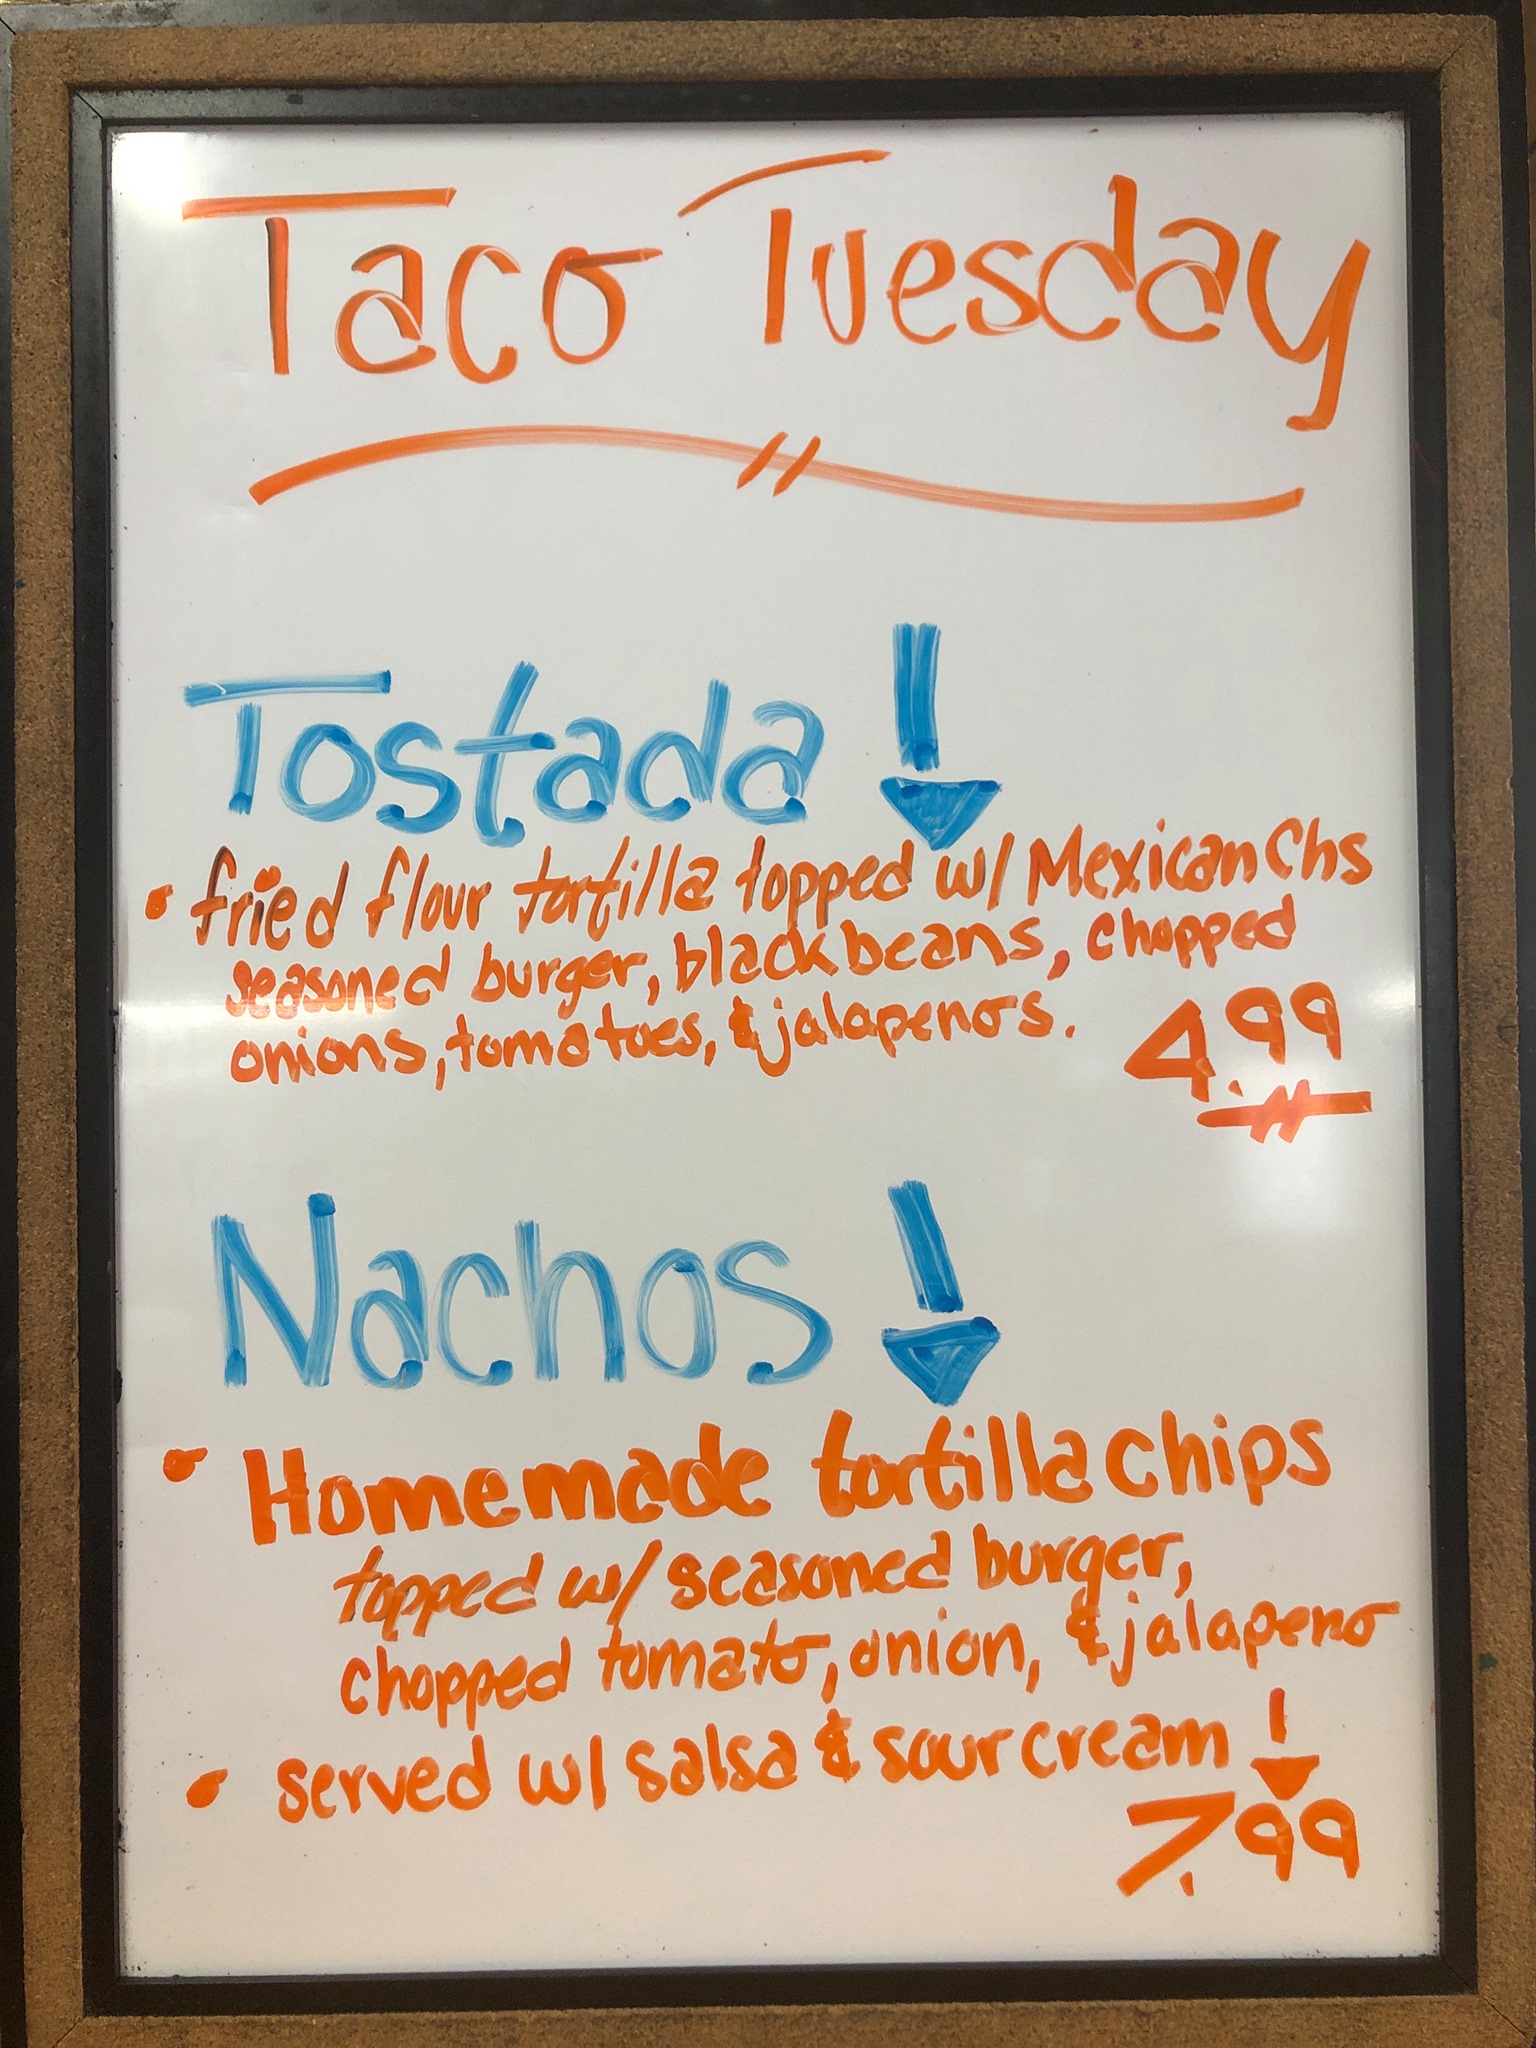 Taco Tuesday
Tostada
• fried flour tortilla topped w/ Mexican Chs
seasoned burger, black beans, chopped
onions, tomatoes, & jalapenos.
4.99
Nachos
• Homemade tortilla chips
topped w/ seasoned burger,
chopped tomato, onion, & jalapeno
• served w/ salsa & sour cream
7.99